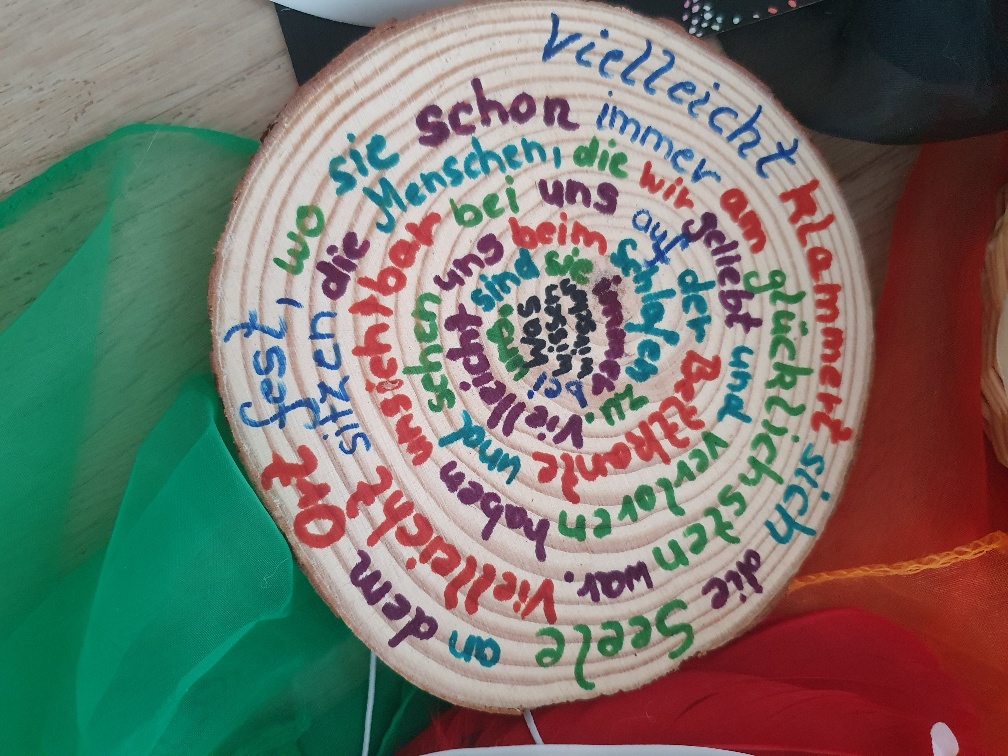 Vielleicht klammert sich die Seele an dem Ort fest, wo sie schon immer am glücklichsten war.
Vielleicht sitzen die Menschen, die wir geliebt und verloren haben
unsichtbar bei uns auf der Bettkante und sehen uns beim Schlafen zu
Vielleicht sind sie immer bei uns
Was